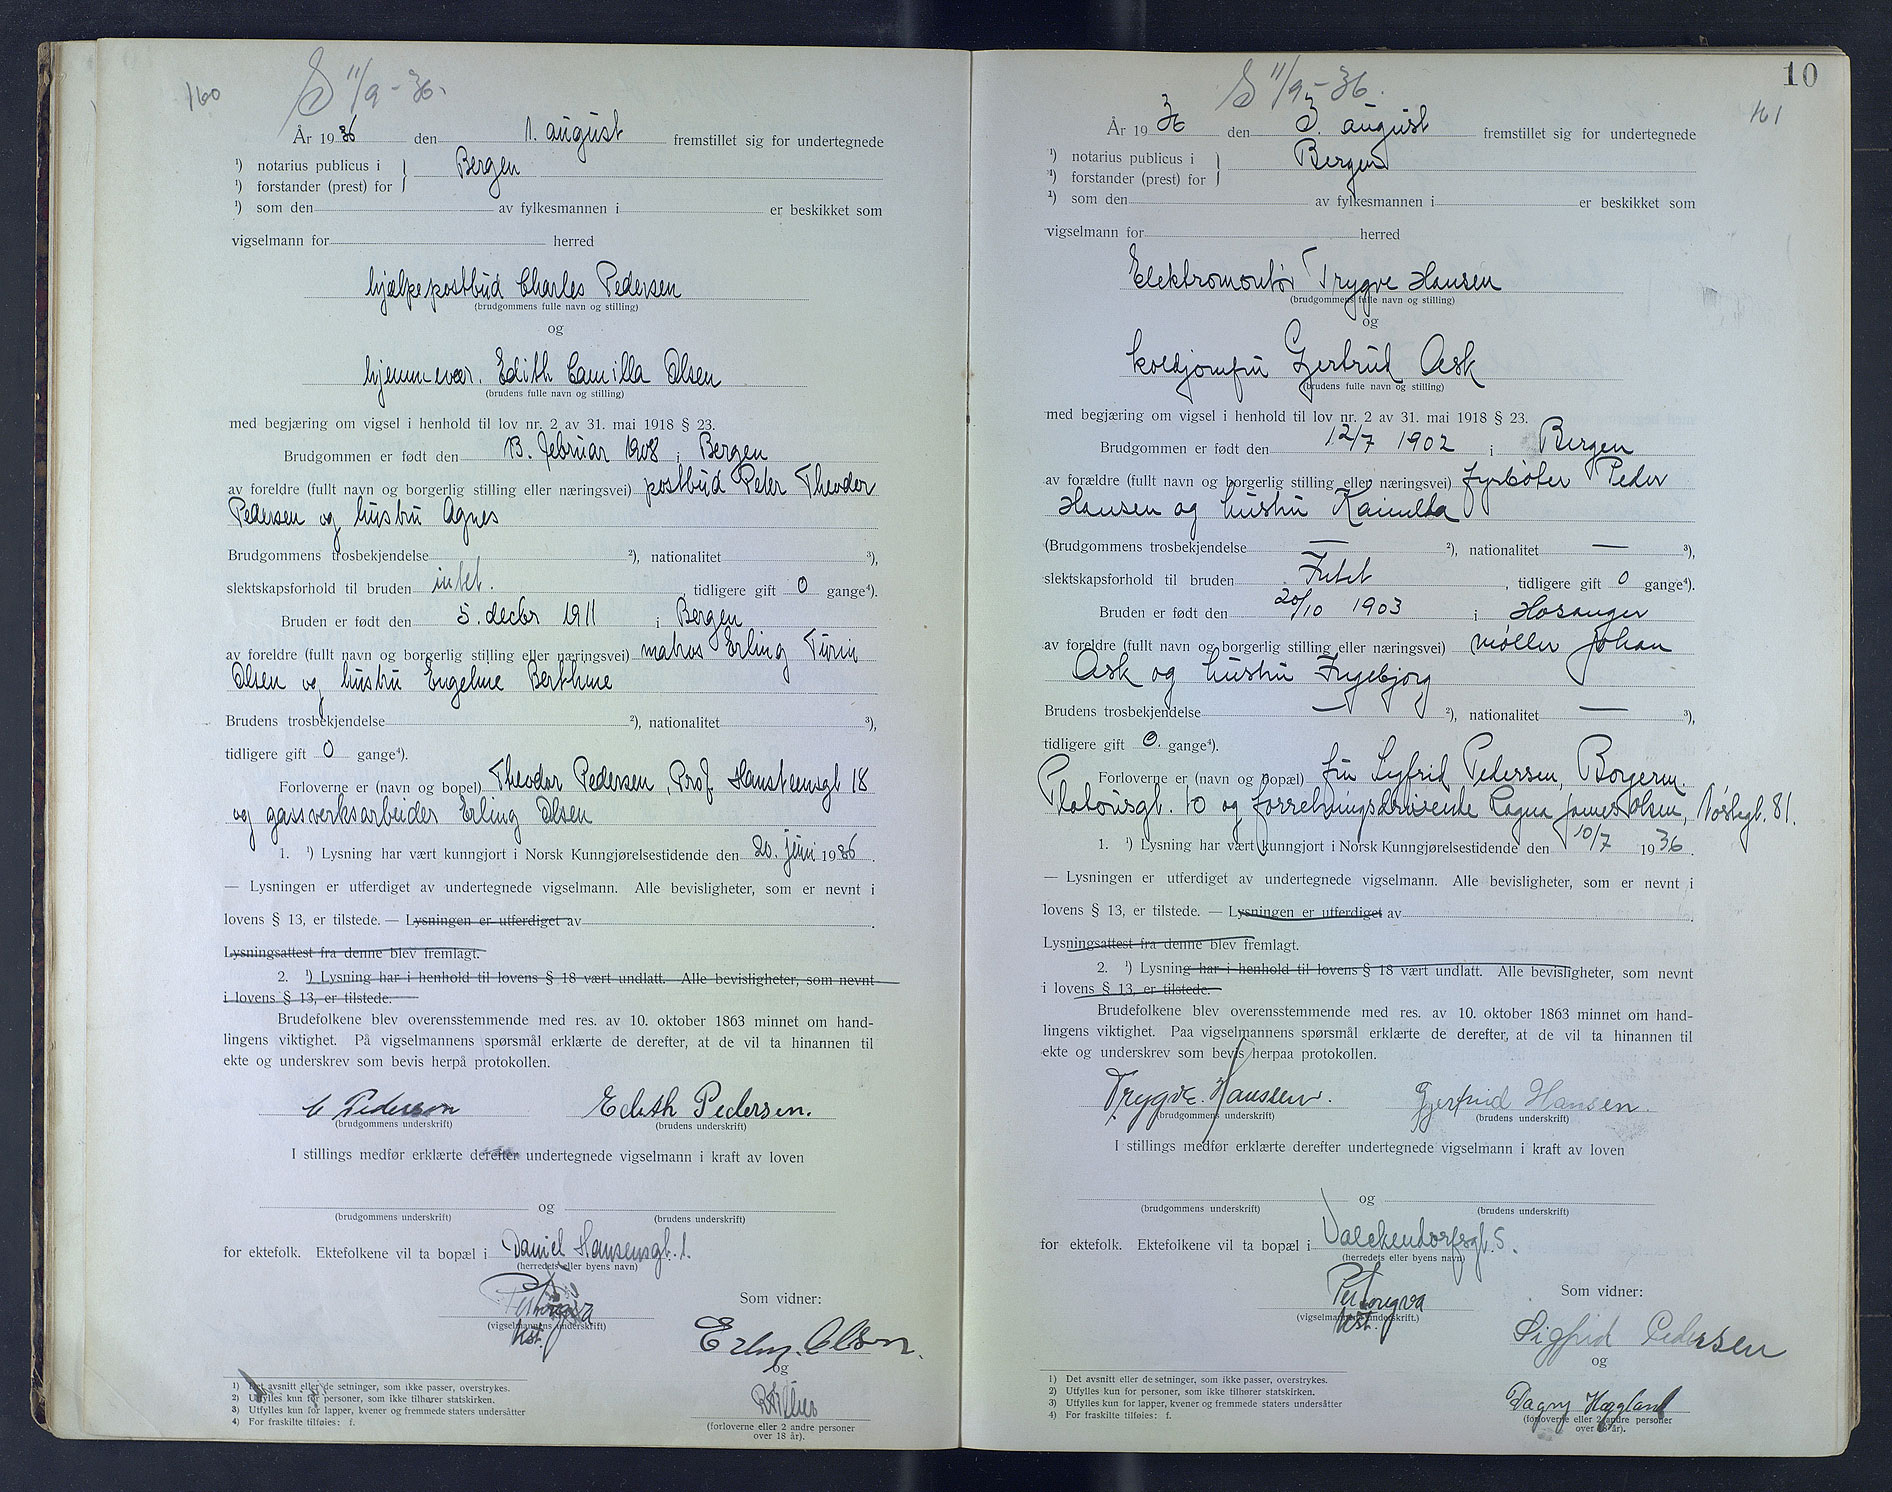 160
S 11/9 - 36.
År 19 36 den 1. august fremstillet sig for undertegnede
¹) notarius publicus i } Bergen
¹) forstander (prest) for
¹) som den av fylkesmannen i er beskikket som
vigselmann for herred
hjælpepostbud Charles Pedersen
(brudgommens fulle navn og stilling)
og
hjemmevær. Edith Camilla Olsen
(brudens fulle navn og stilling)
med begjæring om vigsel i henhold til lov nr. 2 av 31. mai 1918 § 23.
Brudgommen er født den 13. februar 1908 i Bergen
av foreldre (fullt navn og borgerlig stilling eller næringsvei) postbud Peter Theodor
Pedersen og hustru Agnes
Brudgommens trosbekjendelse ²), nationalitet ³),
slektskapsforhold til bruden intet. , tidligere gift 0 gange⁴).
Bruden er født den 5. decbr 1911 i Bergen
av foreldre (fullt navn og borgerlig stilling eller næringsvei) matros Erling
Olsen og hustru Engeline Berthine
Brudens trosbekjendelse ²), nationalitet ³),
tidligere gift 0 gange⁴).
Forloverne er (navn og bopel) Theodor Pedersen, Prof. Hansteensgt 18
og gassverksarbeider Erling Olsen
1. ¹) Lysning har vært kunngjort i Norsk Kunngjørelsestidende den 20. juni 1936.
— Lysningen er utferdiget av undertegnede vigselmann. Alle bevisligheter, som er nevnt i
lovens § 13, er tilstede. — Lysningen er utferdiget av
Lysningsattest fra denne blev fremlagt.
2. ¹) Lysning har i henhold til lovens § 18 vært undlatt. Alle bevisligheter, som nevnt
i lovens § 13, er tilstede.
Brudefolkene blev overensstemmende med res. av 10. oktober 1863 minnet om hand-
lingens viktighet. På vigselmannens spørsmål erklærte de derefter, at de vil ta hinannen til
ekte og underskrev som bevis herpå protokollen.
C Pederson Edith Pedersen.
(brudgommens underskrift) (brudens underskrift)
I stillings medfør erklærte derefter undertegnede vigselmann i kraft av loven
og
(brudgommens underskrift) (brudens underskrift)
for ektefolk. Ektefolkene vil ta bopæl i Daniel Hansensgt. 1.
(herredets eller byens navn)
Som vidner:
(vigselmannens underskrift)
kst.
Olsen
og
(forloverne eller 2 andre personer
over 18 år).
1) Det avsnitt eller de setninger, som ikke passer, overstrykes.
2) Utfylles kun for personer, som ikke tilhører statskirken.
3) Utfylles kun for lapper, kvener og fremmede staters undersåtter
4) For fraskilte tilføies: f.
10
161
S 11/9 - 36.
År 19 36 den 3. august fremstillet sig for undertegnede
¹) notarius publicus i } Bergen
¹) forstander (prest) for
²) som den av fylkesmannen i er beskikket som
vigselmann for herred
Elektromontør Trygve Hansen
(brudgommens fulle navn og stilling)
og
koldjomfru Gjertrud Ask
(brudens fulle navn og stilling)
med begjæring om vigsel i henhold til lov nr. 2 av 31. mai 1918 § 23.
Brudgommen er født den 12/7 1902 i Bergen
av forældre (fullt navn og borgerlig stilling eller næringsvei) fyrbøter Peder
Hansen og hustru Kamilla
(Brudgommens trosbekjendelse — ²), nationalitet — ³),
slektskapsforhold til bruden Intet , tidligere gift 0 gange⁴).
Bruden er født den 20/10 1903 i Hosanger
av foreldre (fullt navn og borgerlig stilling eller næringsvei) møller Johan
Ask og hustru Ingebjørg
Brudens trosbekjendelse — ²), nationalitet — ³),
tidligere gift 0. gange⁴).
Forloverne er (navn og bopæl) fru Sigfrid Pedersen, Borgerm.
Platousgt. 10 og forretningsdrivende Ragna Olsen, Nøstegt. 81.
1. ¹) Lysning har vært kunngjort i Norsk Kunngjørelsestidende den 10/7 1936.
— Lysningen er utferdiget av undertegnede vigselmann. Alle bevisligheter, som er nevnt i
lovens § 13, er tilstede. — Lysningen er utferdiget av
Lysningsattest fra denne blev fremlagt.
2. ¹) Lysning har i henhold til lovens § 18 vært undlatt. Alle bevisligheter, som nevnt
i lovens § 13, er tilstede.
Brudefolkene blev overensstemmende med res. av 10. oktober 1863 minnet om hand-
lingens viktighet. Paa vigselmannens spørsmål erklærte de derefter, at de vil ta hinannen til
ekte og underskrev som bevis herpaa protokollen.
Trygve. Hanssen. Gjertrud Hansen.
(brudgommens underskrift) (brudens underskrift)
I stillings medfør erklærte derefter undertegnede vigselmann i kraft av loven
og
(brudgommens underskrift) (brudens underskrift)
for ektefolk. Ektefolkene vil ta bopæl i Valckendorfsgt. 5.
(herredets eller byens navn)
Som vidner:
(vigselmannens underskrift.)
kst.
Sigfrid Pedersen
og
Dagny Hægland
(forloverne eller 2 andre personer
over 18 år).
1) Det avsnitt eller de setninger, som ikke passer, overstrykes.
2) Utfylles kun for personer, som ikke tilhører statskirken.
3) Utfylles kun for lapper, kvener og fremmede staters undersåtter
4) For fraskilte tilføies: f.